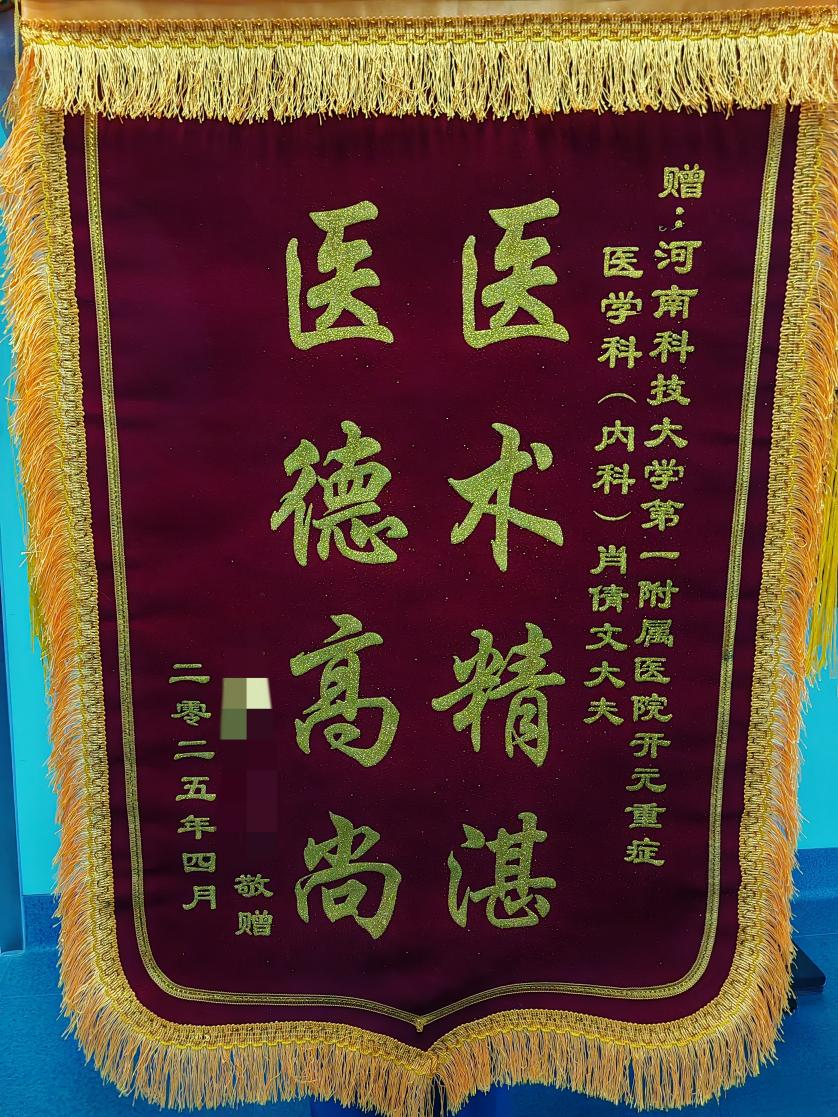 赠：河南科技大学第一附属医院开元重症
医学科（内科）肖倩文大夫
医术精湛
医德高尚
敬赠
二零二五年四月